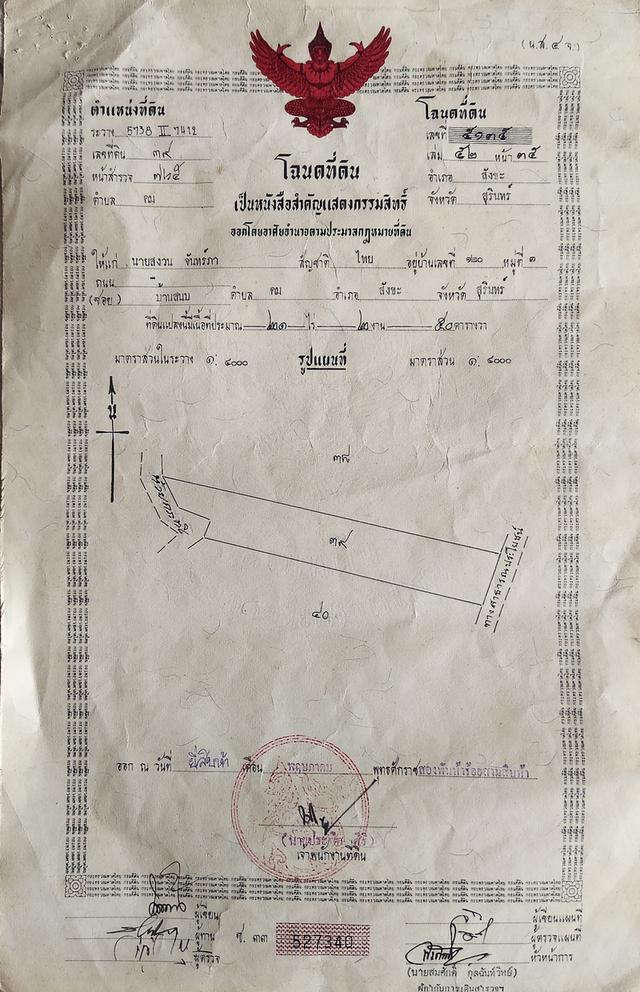 (น.ส.๔ จ.)
ตำแหน่งที่ดิน
ระวาง 5738 II 7412
เลขที่ดิน ๓๙
หน้าสำรวจ ๗๒๕
ตำบล คม
โฉนดที่ดิน
เลขที่ ๕๑๓๕
เล่ม ๕๒ หน้า ๓๕
อำเภอ สังขะ
จังหวัด สุรินทร์
โฉนดที่ดิน
เป็นหนังสือสำคัญแสดงกรรมสิทธิ์
ออกโดยอาศัยอำนาจตามประมวลกฎหมายที่ดิน
ให้แก่ นายสงวน จันทร์ภา สัญชาติ ไทย อยู่บ้านเลขที่ ๑๒๐ หมู่ที่ ๓
ถนน -
(ซอย) บ้านสนบ ตำบล คม อำเภอ สังขะ จังหวัด สุรินทร์
ที่ดินแปลงนี้มีเนื้อที่ประมาณ ๒๑ ไร่ ๒ งาน ๕๐ ตารางวา
มาตราส่วนในระวาง ๑: ๔๐๐๐ รูปแผนที่ มาตราส่วน ๑: ๔๐๐๐
น
๓๘
๓๙
๔๐
ทางสาธารณประโยชน์
ออก ณ วันที่ ยี่สิบห้า เดือน พฤษภาคม พุทธศักราช สองพันห้าร้อยสามสิบห้า
เจ้าพนักงานที่ดิน
ผู้เขียน
ผู้ทาน
ผู้ตรวจ
ช. ๓๓ 527340
ผู้เขียนแผนที่
ผู้ตรวจแผนที่
หัวหน้าการ
(นายสมศักดิ์ กุลฉันท์วิทย์)